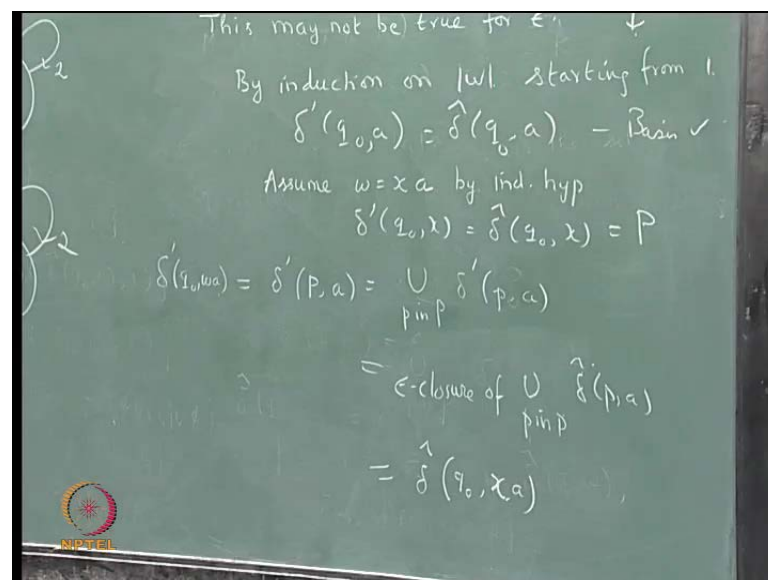 This may not be) true for ε. ↓
By induction on |w|. starting from 1.
δ'(q₀,a) = δ̂(q₀,a) - Basis ✓
Assume w = xa by ind. hyp
δ'(q₀,x) = δ̂(q₀,x) = P
δ'(q₀,wa) = δ'(P,a) = ∪ δ'(p,a)
p in P
= ε-closure of ∪ δ̂(p,a)
p in P
= δ̂(q₀,xa)
2
2
NPTEL